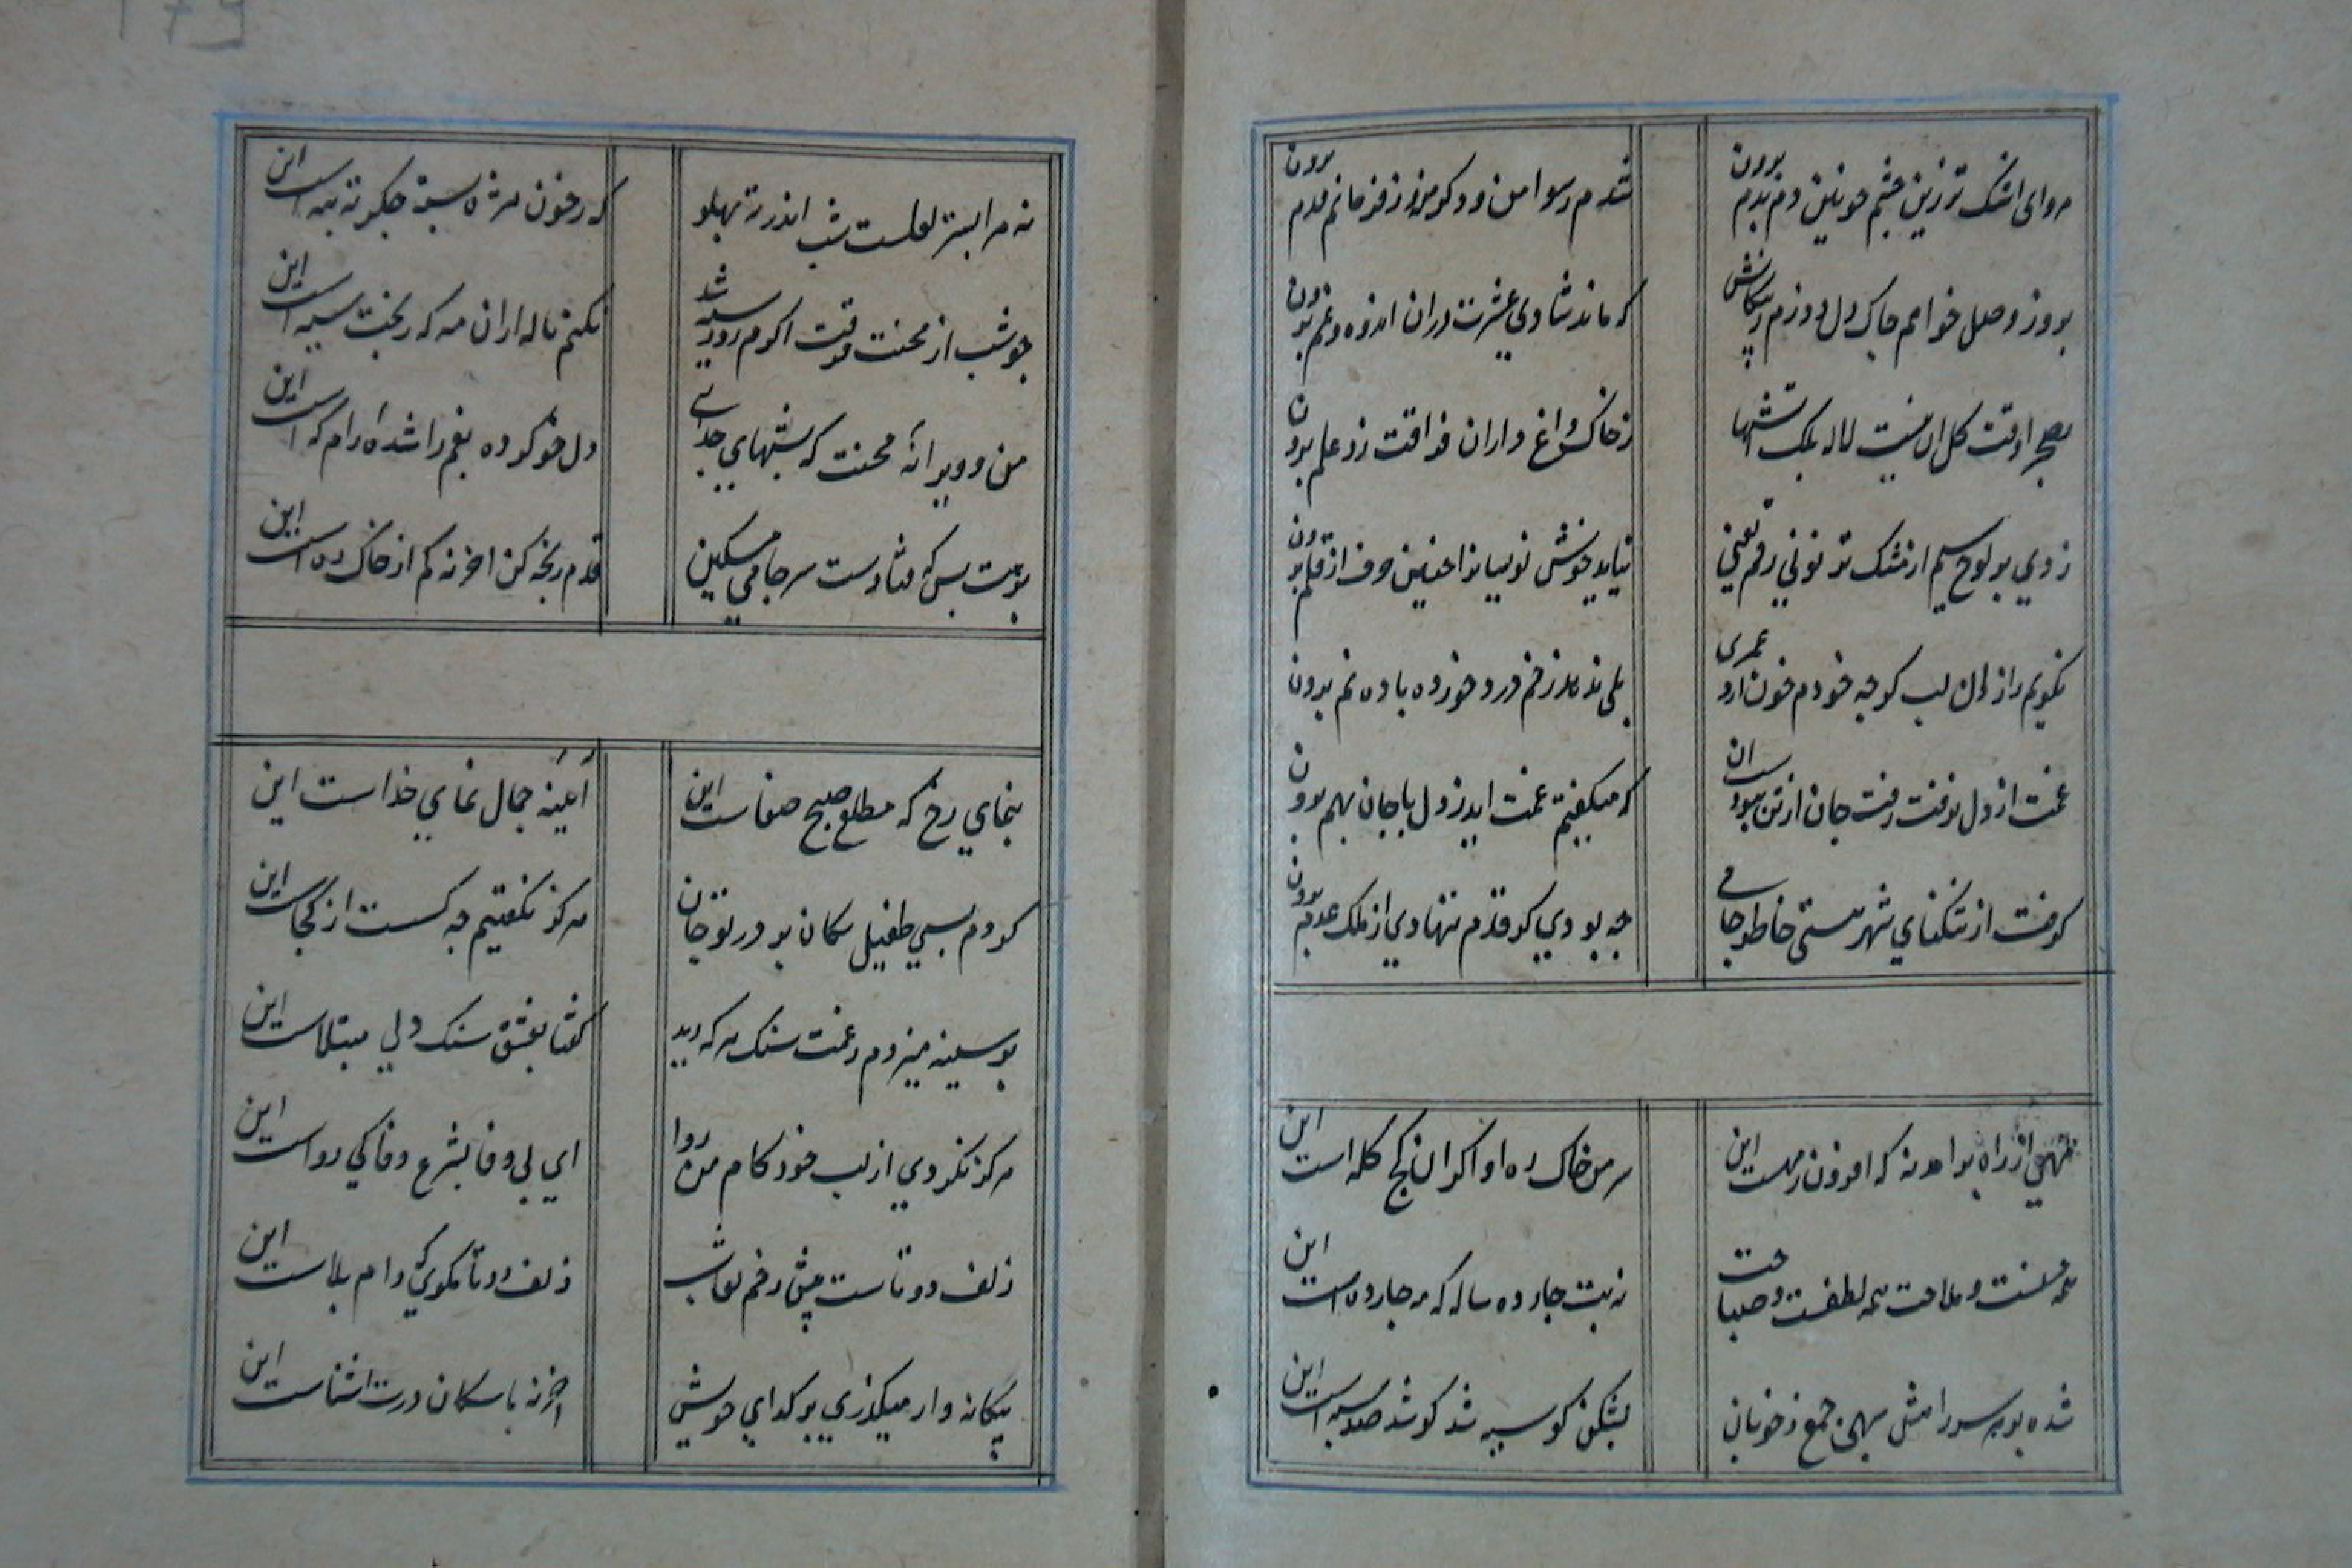 مرو ای اشک تر زین چشم خونین دم بدم برون
شدم رسوا من و دکر مزو زفرمانم قدم برون
بروز وصل خواهم چاک دل دوزم ز پیکانش
که ماند شادی عشرت دران اندوه و غم برون
بصحرا وقت کل ان نیست لاله بلک اتشها
ز خاک داغ داران فراقت زد علم برون
زدی بر لوح سیم از مشک تر نونی رقم یعنی
نیاید خوش نویسانرا چنین حرف از قلم برون
نکویم راز دل لب کرچه خودم خون ارد عمری
بلی ندهد زخم درد خورده باده نم برون
غمت از دل نرفت رفت جان از تن بپرد سان
که میکفتم غمت اید ز دل با جان بهم برون
کرفت از تنکنای شهر هستی خاطر جامی
چه بودی کر قدم ننهادی از ملک عدم برون
از راه برامد نه که افزون ز مهست این
سر من خاک ره او اکر ان کج کله است این
همه حسنت و ملاحت همه لطفت و صباحت
نه بت چارده ساله که مه چارده است این
شده بر سر را مش بهی جمع ز خوبان
بشکن کو سپه شد کو شد صد سپه است این
نه مرا بستر لعلست شب اندر ته پهلو
که ز خون مژه بسته جکر ته بته است این
چو شب از محنت فرقت اکرم روز سیه شد
نکنم ناله ازان مه که ز بخت سیه است این
من و ویرانه محنت که بشبهای جدایی
دل خو کرده بغم را شده ارام که است این
برهت بس که فتادست سر جامی مسکین
قدم رنجه کن اخر نه کم از خاک ره است این
بنمای رخ که مطلع صبح صفاست این
آیینه جمال نمای خداست این
کردم بسی طفیل سکان بر در تو جان
هرکز نکفتیم چه کست از کجاست این
بر سینه میزدم ز غمت سنک هر که دید
کفتا بعشق سنک دلی مبتلاست این
هرکز نکردی از لب خود کام من روا
ای بی وفا بشرع وفا کی رواست این
زلف دوتاست پیش رخم نقاب
زلف دوتا مکوی که دام بلاست این
بیکانه وار میکذری بر کدای خویش
اخر نه با سکان درت اشناست این